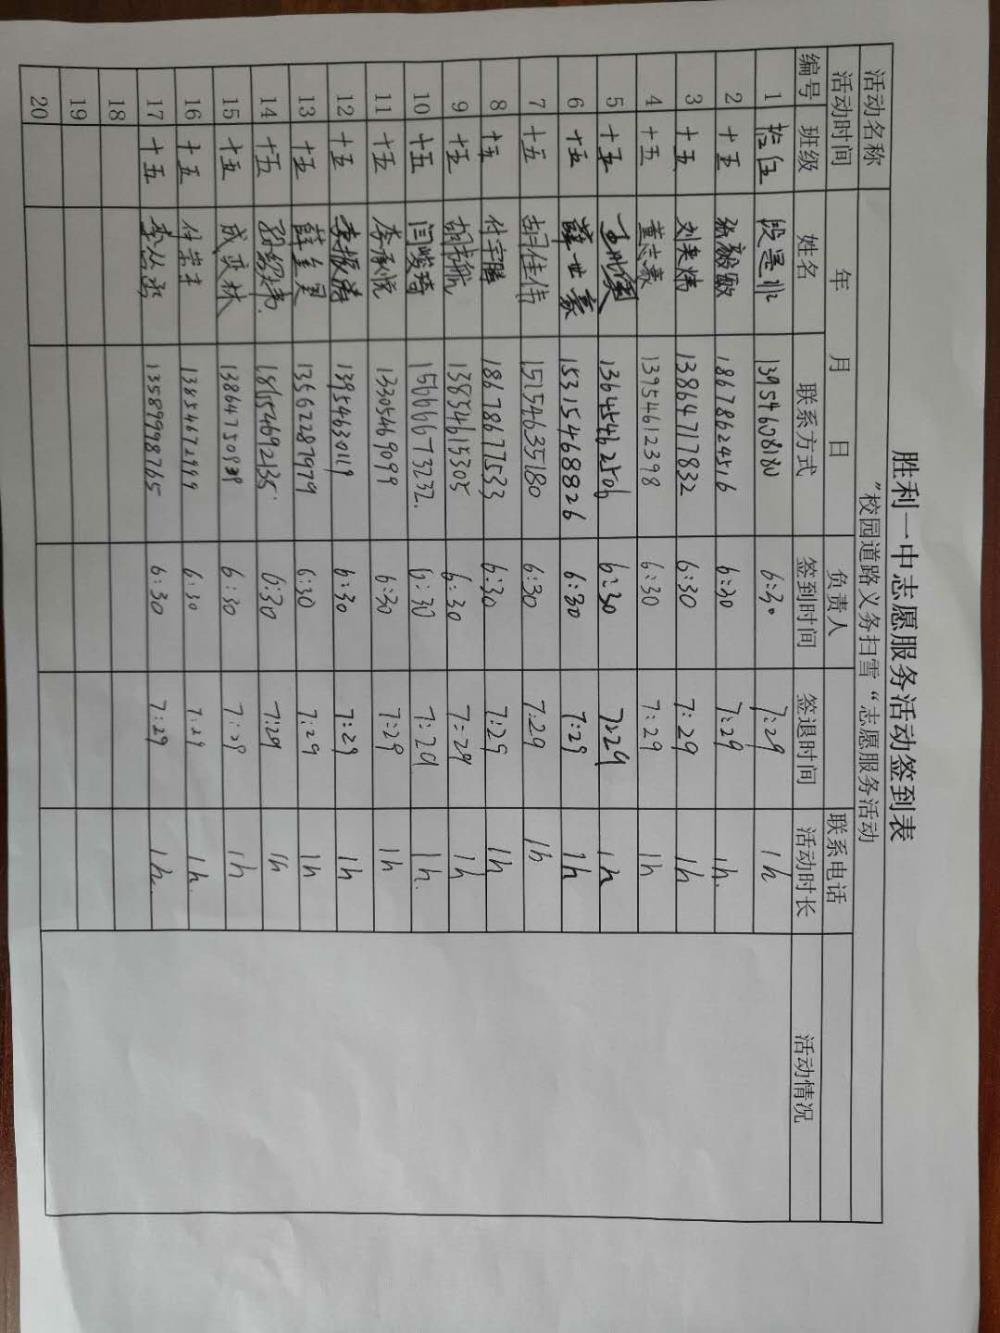 胜利一中志愿服务活动签到表
活动名称 "校园道路义务扫雪"志愿服务活动
活动时间 年 月 日 负责人 联系电话
编号 班级 姓名 联系方式 签到时间 签退时间 活动时长 活动情况
1 拾伍 段是非 13954608180 6:30 7:29 1h
2 十五 张毅敏 18678624516 6:30 7:29 1h.
3 十五 13864717832 6:30 7:29 1h
4 十五 董志豪 13954612398 6:30 7:29 1h
5 十五 13645462506 6:30 7:29 1h
6 十五 薛世豪 15315468826 6:30 7:29 1h
7 十五 胡佳伟 15154635180 6:30 7:29 1h
8 十五 付宇腾 18678677533 6:30 7:29 1h
9 十五 13854615305 6:30 7:29 1h
10 十五 闫峻琦 15666673232. 6:30 7:29 1h.
11 十五 李承悦 13305469099 6:30 7:29 1h
12 十五 李振涛 13954630119 6:30 7:29 1h
13 十五 13562287979 6:30 7:29 1h
14 十五 18615469235 6:30 7:29 1h
15 十五 成奕林 6:30 7:29 1h
16 十五 付荣丰 13854672999 6:30 7:29 1h.
17 十五 李丛丞 13589998765 6:30 7:29 1h.
18
19
20